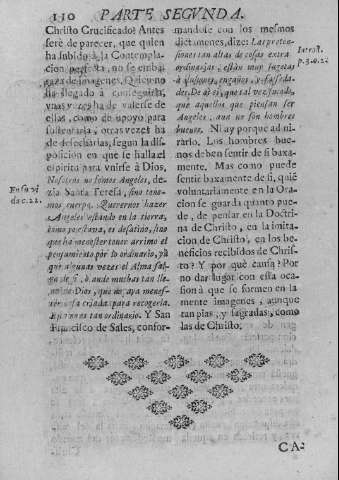 130 PARTE SEGVNDA.
Christo Crucificado? Antes
serè de parecer, que quien
ha subido à la Contempla-
cion perfecta, no se emba-
gaza de imagenes. Quien no
ha llegado à conseguirla,
vnas vezes ha de valerse de
ellas, como de apoyo para
sustentarla, otras vezes ha
de desecharlas, segun la dis-
posicion en que se halla el
espiritu para vnirse à Dios.
Nosotros no somos Angeles, de-
zia Santa Teresa, sino tene-
mos cuerpo. Querernos hazer
Angeles estando en la tierra,
es desatino, sino
que ha menester tener arrimo el
pensamiento por lo ordinario, yà
que algunas vezes el Alma salga
de sì, ò ande muchas tan lle-
na de Dios, que no aya menes-
ter cosa criada para recogerla.
no es tan ordinario. Y San
Francisco de Sales, confor-
En su vi
da c. 22.
mandose con los mesmos
dictamenes, dize: Las preten-
siones tan altas de cosas extra-
ordinarias, estàn muy sugetas
à ilusiones, engaños, y falseda-
des. De aì es, que tal vez sucede,
què aquellos que piensan ser
Angeles, aun no son hombres
buenos. Ni ay porque ad
rarlo. Los hombres bue-
nos deben sentir de sì baxa-
mente. Mas como puede
sentir baxamente de sì, quiè
voluntariamente en la Ora-
cion se guarda quanto pue-
de, de pensar en la Doctri-
na de Christo, en la imita-
cion de Christo, en los be-
neficios recibidos de Chris-
to? Y por què causa? Por
no dar lugar con esta oca-
sion à que se formen en la
mente imagenes, aunque
tan pias, y sagradas, como
las de Christo.
Introd.
CA-